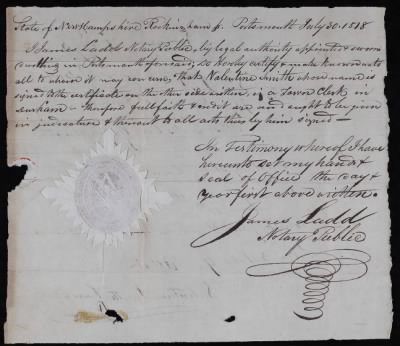 State of New Hampshire Rockingham ss. Portsmouth July 30. 1818
I James Ladd Notary Public, by legal authority appointed & sworn
dwelling in Portsmouth aforesaid, Do Hereby certify & make known unto
all to whom it may concern, That Valentine Smith whose name is
signed to the certificate on the other side written, is a Town Clerk in
Durham — Therefore full faith & credit are and ought to be given
in judicature & thereout to all acts thus by him signed —
In Testimony whereof I have
hereunto set my hand &
seal of Office the day &
year first above written.
James Ladd
Notary Public